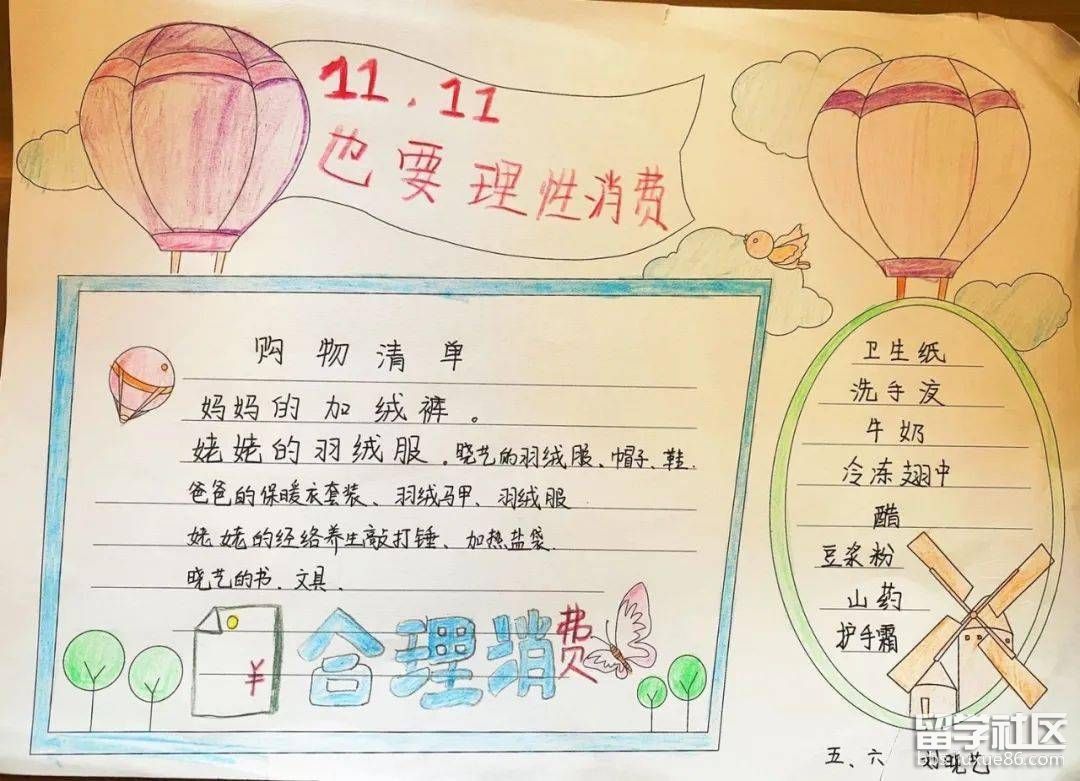 11.11
也要理性消费
购物清单
妈妈的加绒裤。
姥姥的羽绒服.晓艺的羽绒服、帽子、鞋.
爸爸的保暖衣套装、羽绒马甲、羽绒服.
姥姥的经络养生敲打锤、加热盐袋.
晓艺的书、文具.
¥
合理消费
卫生纸
洗手液
牛奶
冷冻翅中
醋
豆浆粉
山药
护手霜
五、六 刘晓艺
留学社区
bbs.liuxue86.com